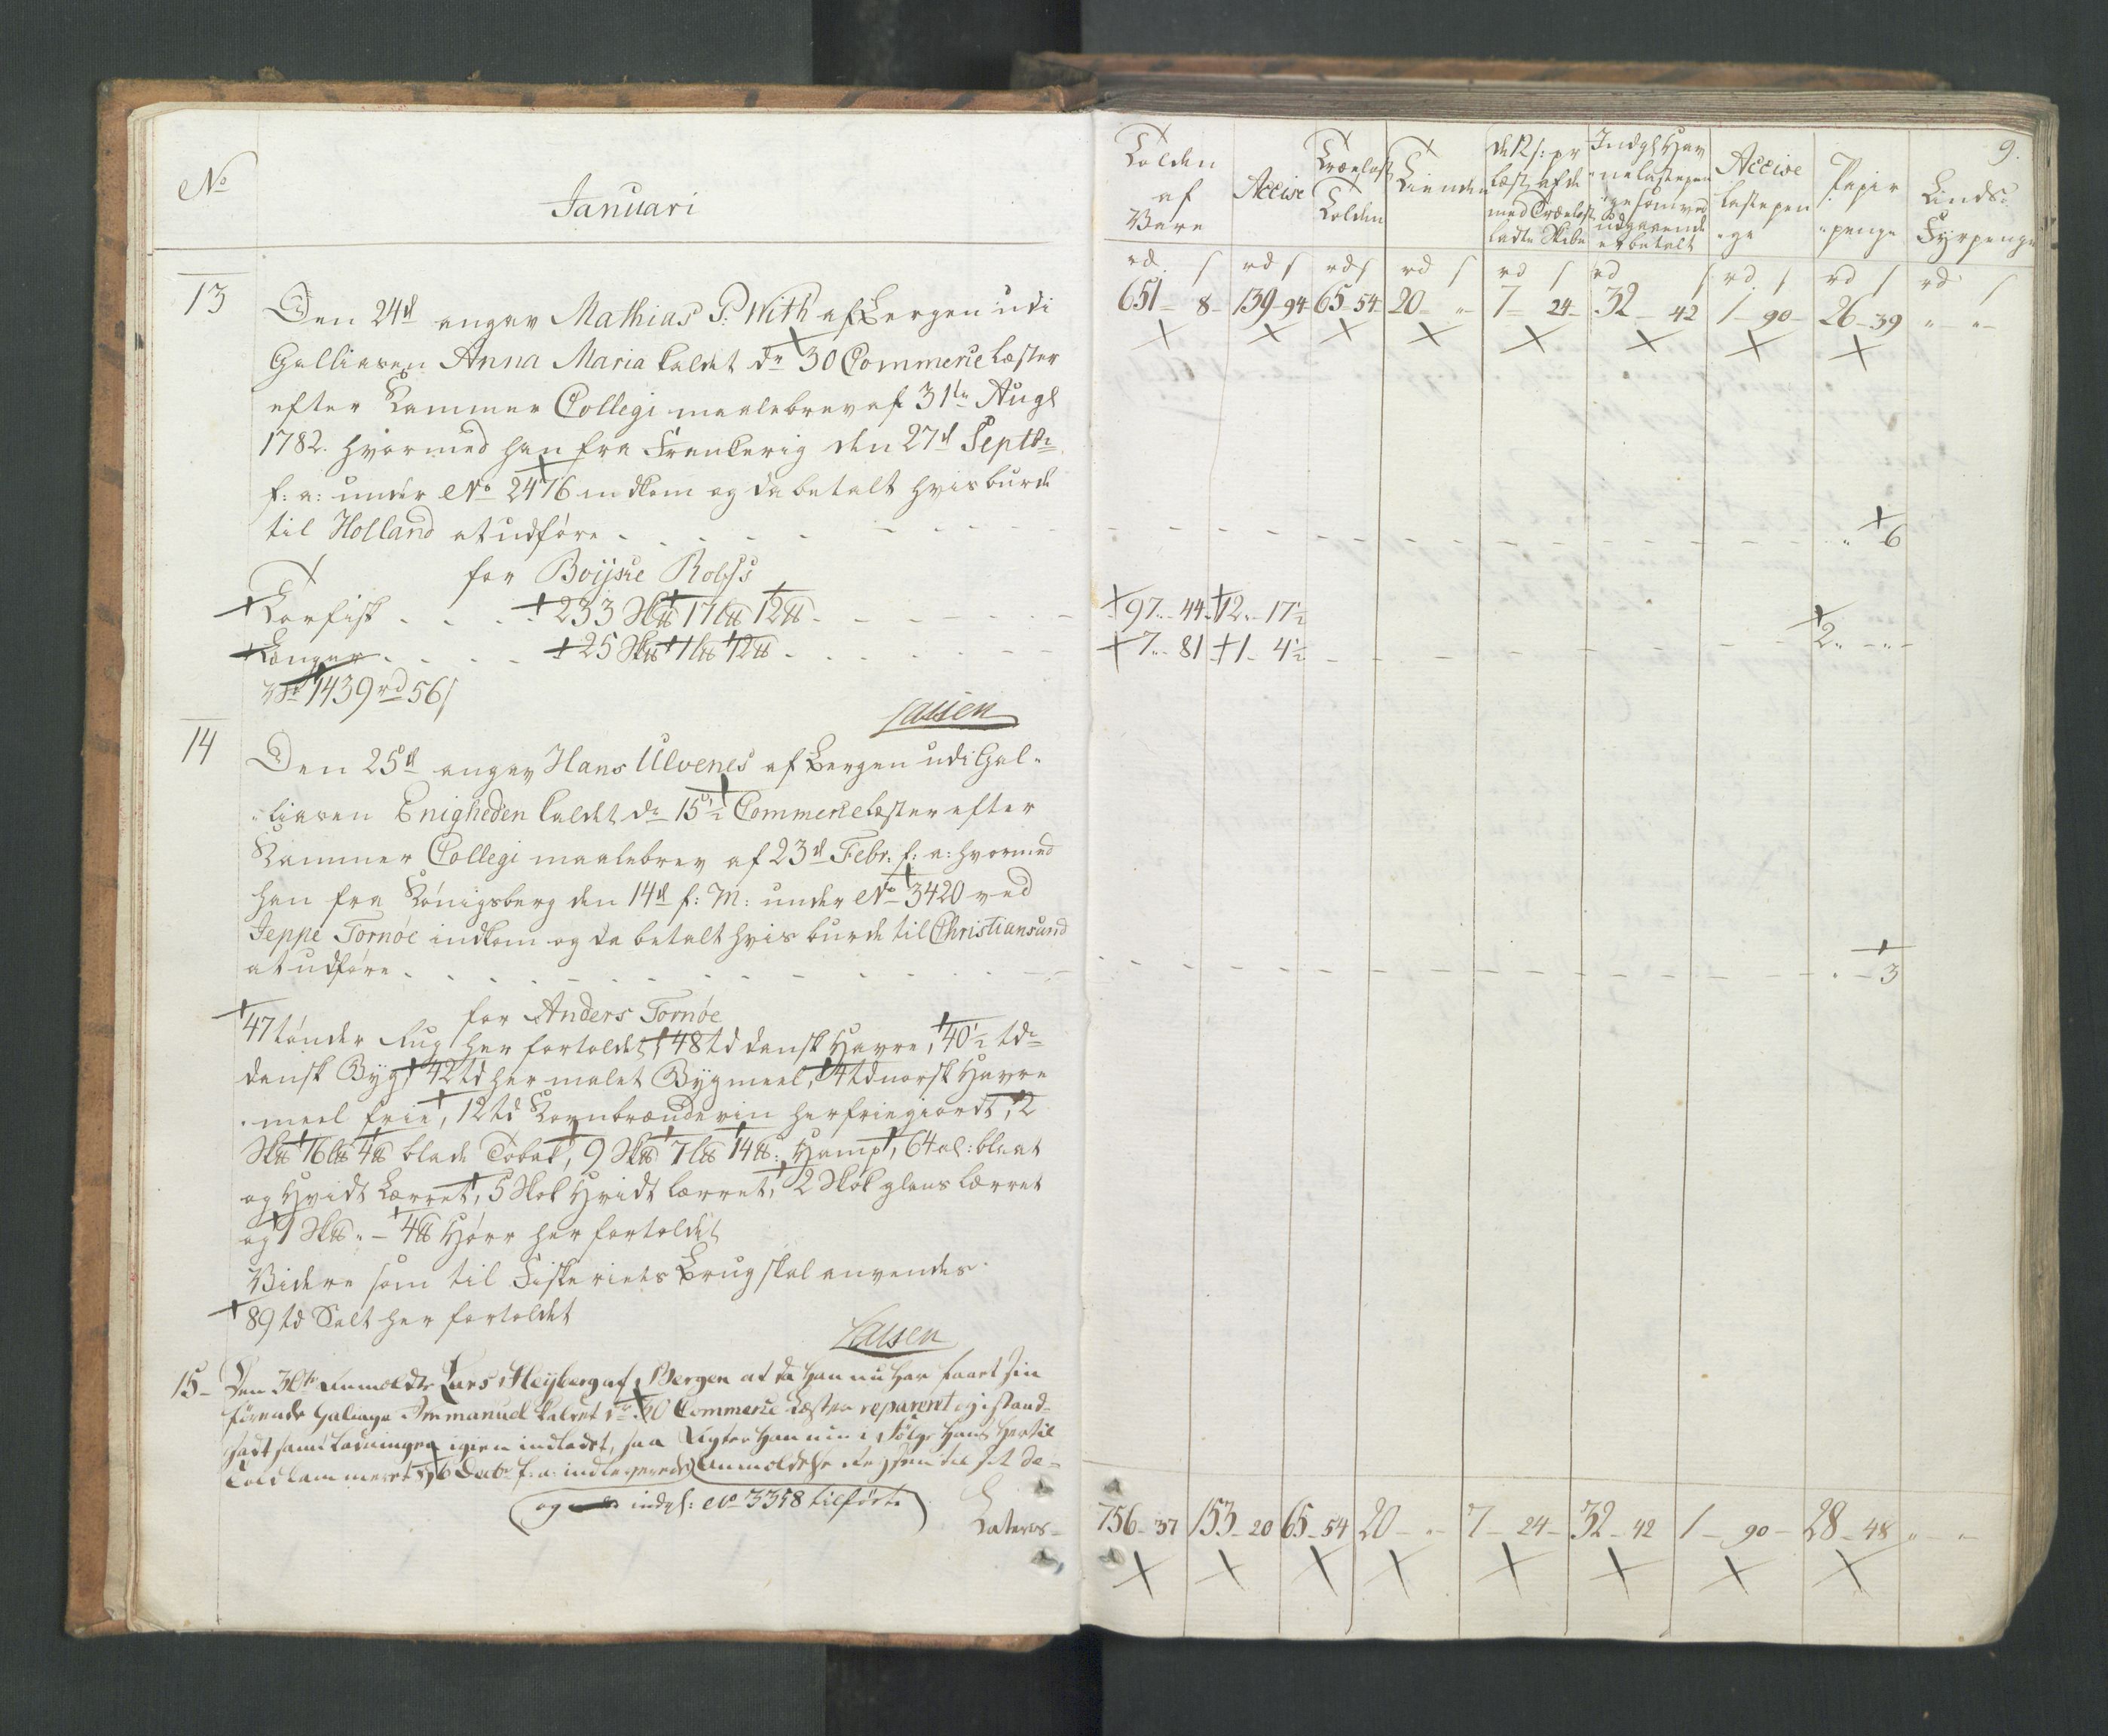 No
Januari
13
Den 24d angav Mathias P: With af Bergen udi
Galliasen Anna Maria kaldet dr 30 Commercelæster
efter Kammer Collegi maalebrev af 31te Augt
1782. hvormed han fra Frankerig den 27d Septbr
f: a: under No 2476 indkom og da betalt hvis burde
til Holland at udføre - - - - - -
for Boijsie Rolfs
Torfisk - - - 233 Sk℔ 17 l℔ 12 ℔ - - - -
Langer - - - - 25 Sk℔ 1 l℔ 12 ℔ - - - -
Vr 1439 rd 56 s
Lassen
14
Den 25d angav Hans Ulvenes af Bergen udi Gal-
liasen Enigheden kaldet dr 15½ Commercelæster efter
Kammer Collegi maalebrev af 23d Febr. f: a: hvormed
han fra Königsberg den 14d f: M: under No 3420 ved
Jeppe Tornöe indkom og da betalt hvis burde til Christiansund
at udføre - - - - - - - -
for Anders Tornöe
47 tönder Rug her fortoldet, 48 td dansk Havre, 40½ tdr
dansk Byg, 42 td her malet Bygmeel, 4 td norsk Havre
meel frie, 12 td Kornbrændeviin her friegiordt, 2
Sk℔ 16 l℔ 4 ℔ blade Tobak, 9 Sk℔ 7 l℔ 14 ℔: Hamp, 64 al: blaat
og Hvidt Lærret, 5 Skok Hvidt lærret, 2 Skok glans lærret
og 1 Sk℔ „ - 4 ℔ Hörr her fortoldet
Videre som til Fiskeriets Brug skal anvendes.
89 td Salt her fortoldet
Lassen
15 - Den 30te anmeldte Lars Heijberg af Bergen at da han nu har faaet sin
förende Galiage Immanuel kaldet dr 30 Commerce Læster reparert og istand-
sadt samt Ladningen igien indladet, saa agter han nu i Fölge hans her til
Toldkammeret d 6 Decbr f: a: indleverede Anmeldelse Reysen til sit De-
(og indgl: No 3358 tilförte)
Lateris -
9.
Tolden af Vare
Accise
Trælast Tolden
Tienden
de 12 s: pr læst af de med Trælast ladte Skibe
Indgl Havne lastepenge som ved udgaaende er betalt
Accise lastepenge
Papir penge
Linds: Fyrpenge
rd s rd s rd s rd s rd s rd s rd s rd s rd s
651 - 8 - 139 - 94 65 - 54 20 - „ - 7 - 24 - 32 - 42 1 - 90 - 26 - 39 „ - „ -
„ 6
97 - 44 - 12 - 17½
7 - 81 - 1 - 4½ - - - - - - 2 - „ -
„ - 3
756 - 37 153 - 20 65 - 54 20 - „ - 7 - 24 - 32 - 42 1 - 90 - 28 - 48 „ „ -